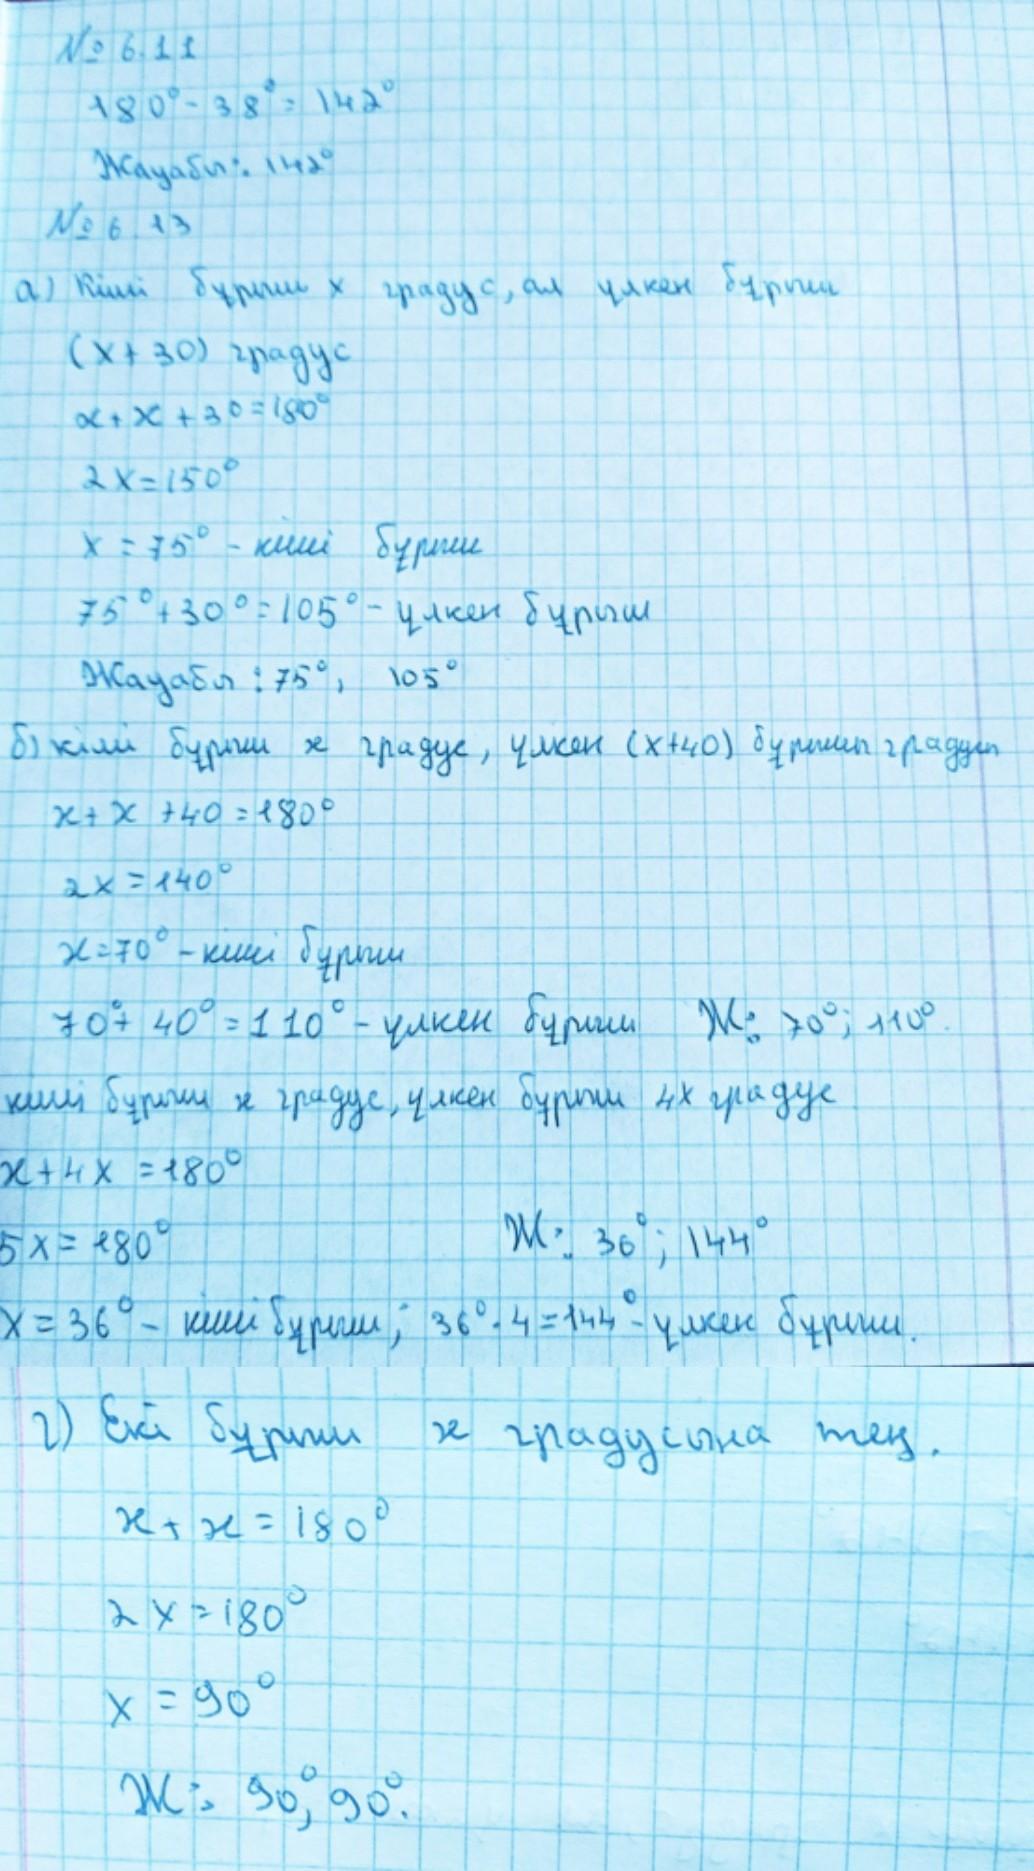 № 6.11
180° - 38° = 142°
Жауабы: 142°
№ 6.13
а) Кіші бұрыш x градус, ал үлкен бұрыш
(x + 30) градус
x + x + 30 = 180°
2x = 150°
x = 75° - кіші бұрыш
75° + 30° = 105° - үлкен бұрыш
Жауабы: 75°; 105°
б) кіші бұрыш x градус, үлкен (x+40) бұрышы градусы
x + x + 40 = 180°
2x = 140°
x = 70° - кіші бұрыш
70° + 40° = 110° - үлкен бұрыш Ж: 70°; 110°.
кіші бұрыш x градус, үлкен бұрыш 4x градус
x + 4x = 180°
5x = 180° Ж: 36°; 144°
x = 36° - кіші бұрыш; 36° · 4 = 144° - үлкен бұрыш.
г) Екі бұрыш x градусына тең.
x + x = 180°
2x = 180°
x = 90°
Ж: 90°, 90°.